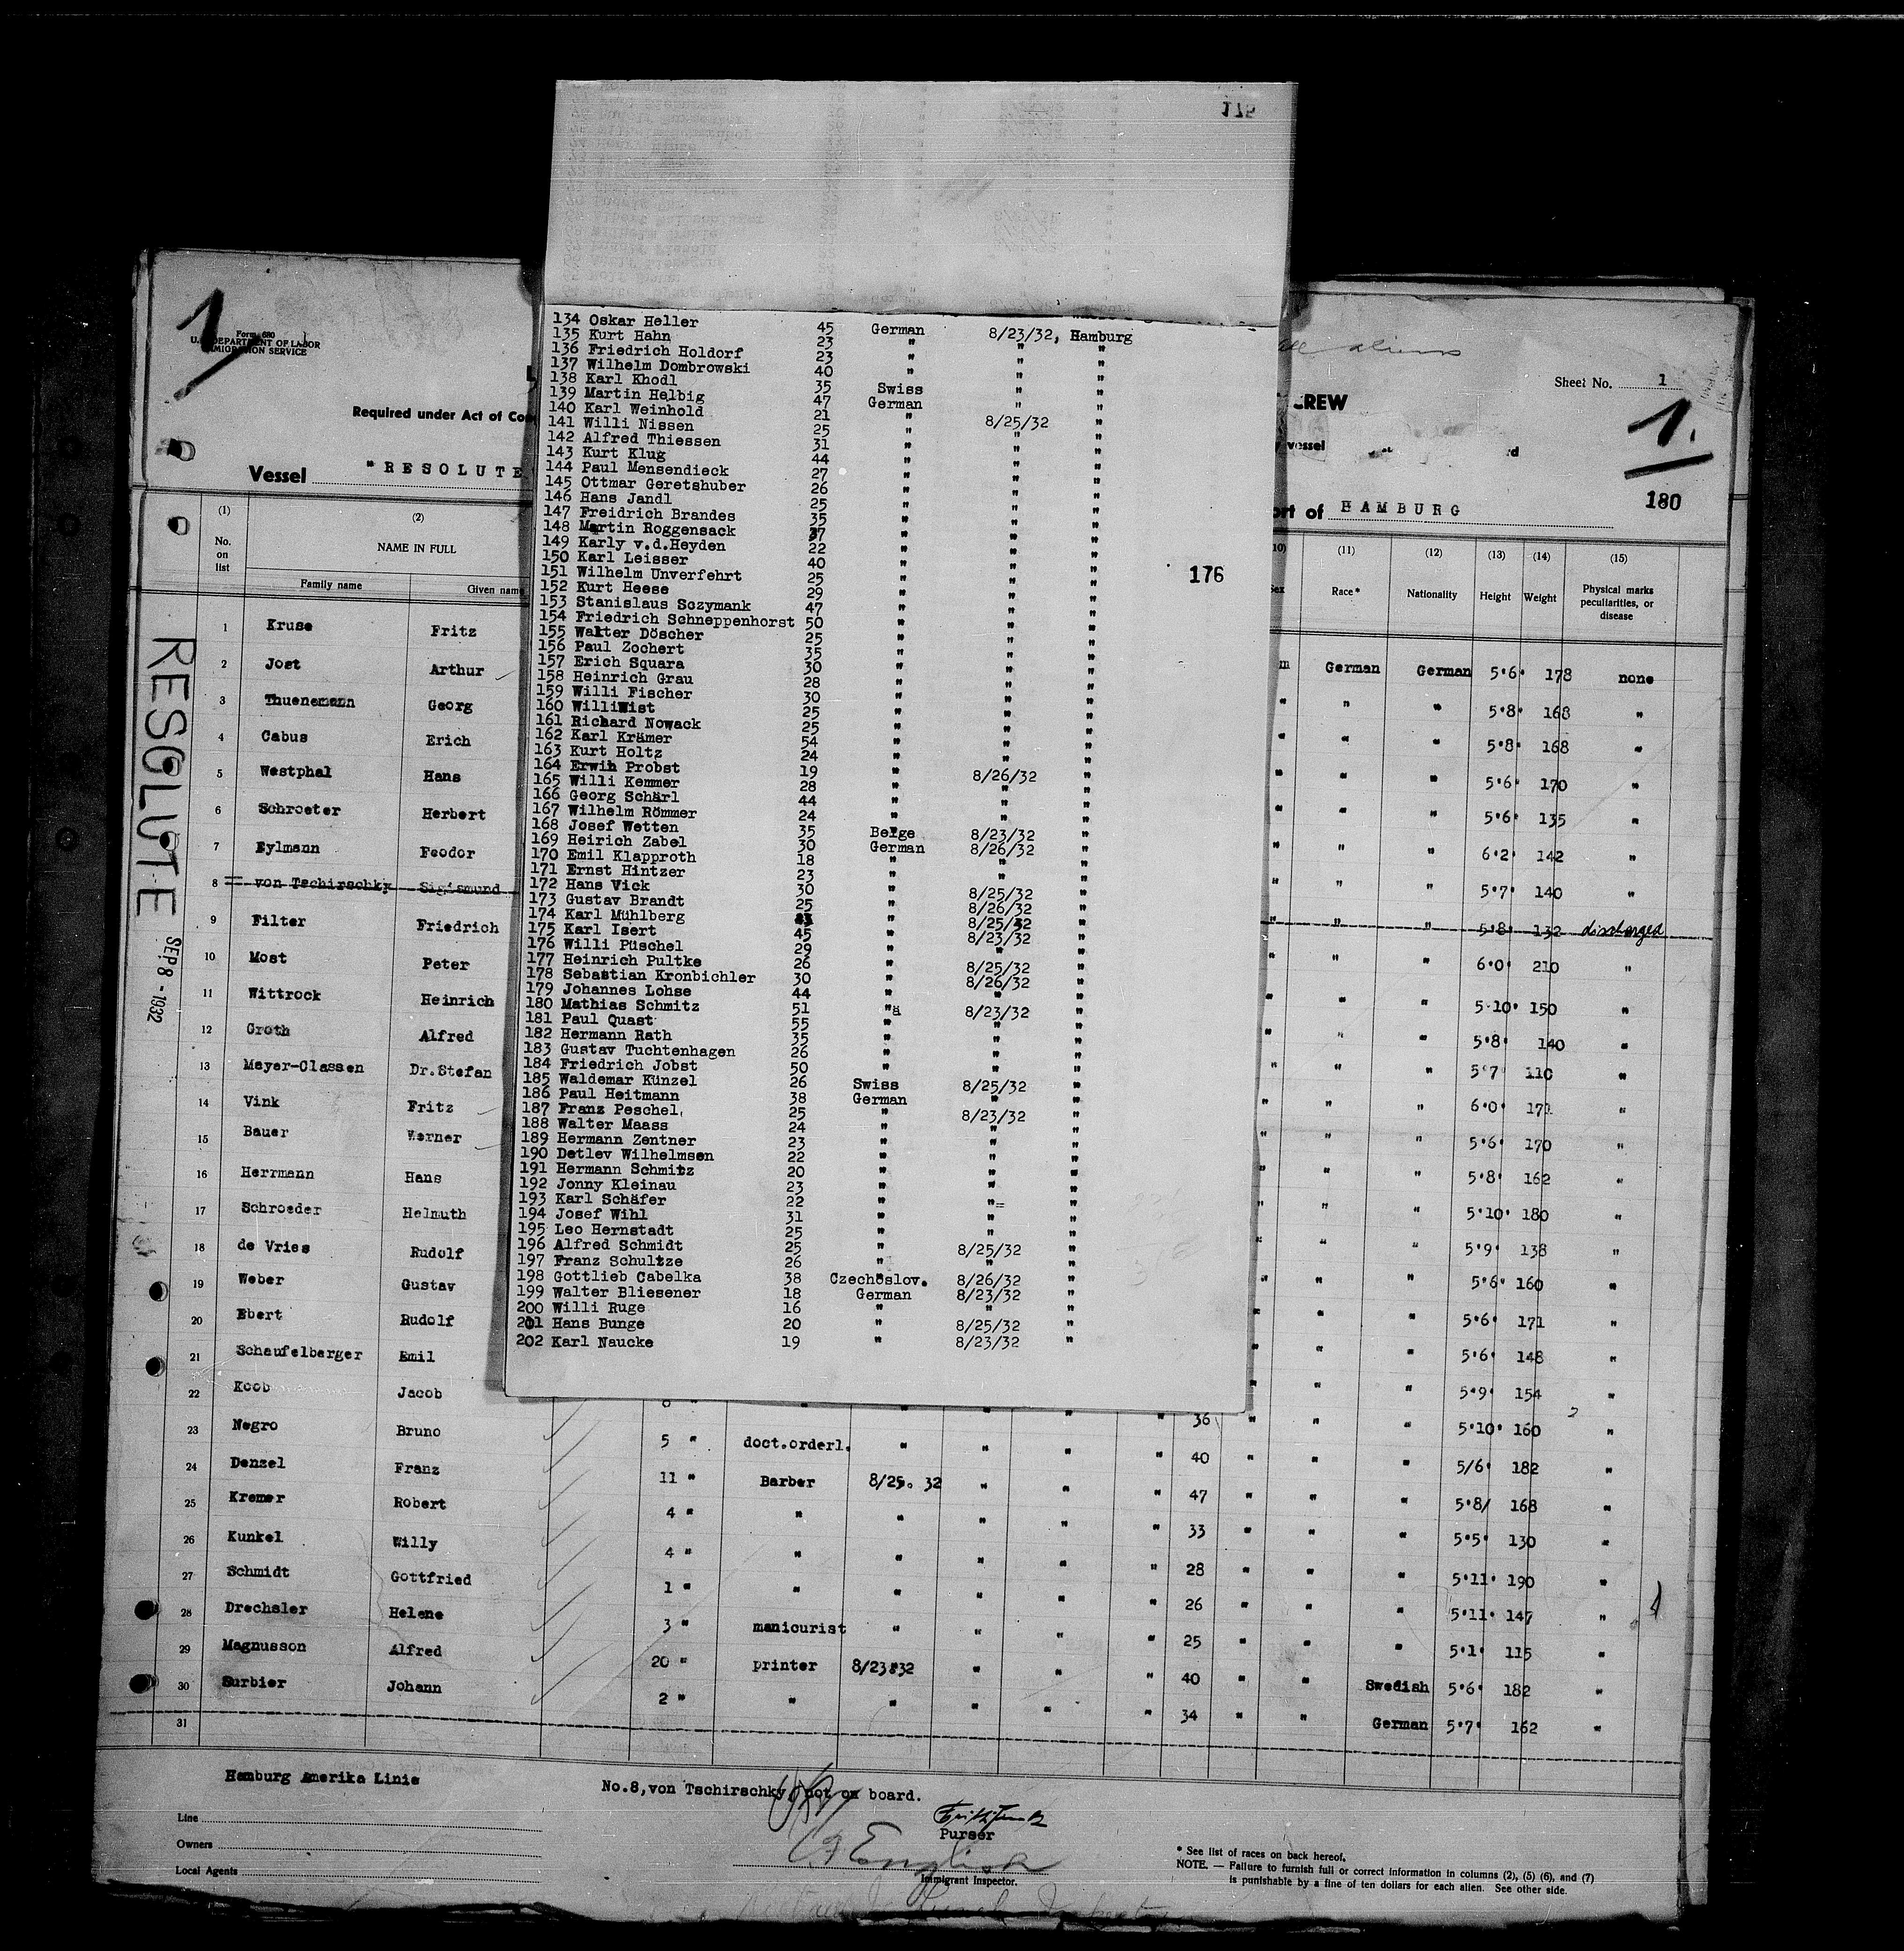 175
134 Oskar Heller 45 German 8/23/32, Hamburg
135 Kurt Hahn 23 " " "
136 Friedrich Holdorf 23 " " "
137 Wilhelm Dombrowski 40 " " "
138 Karl Khodl 35 Swiss " "
139 Martin Helbig 47 German " "
140 Karl Weinhold 21 " 8/25/32 "
141 Willi Nissen 25 " " "
142 Alfred Thiessen 31 " " "
143 Kurt Klug 44 " " "
144 Paul Mensendieck 27 " " "
145 Ottmar Geretshuber 26 " " "
146 Hans Jandl 25 " " "
147 Freidrich Brandes 35 " " "
148 Martin Roggensack 37 " " "
149 Karly v.d.Heyden 22 " " "
150 Karl Leisser 40 " " "
151 Wilhelm Unverfehrt 25 " " "
152 Kurt Heese 29 " " "
153 Stanislaus Sczymank 47 " " "
154 Friedrich Schneppenhorst 50 " " "
155 Walter Döscher 25 " " "
156 Paul Zochert 35 " " "
157 Erich Squara 30 " " "
158 Heinrich Grau 28 " " "
159 Willi Fischer 30 " " "
160 WilliWist 25 " " "
161 Richard Nowack 25 " " "
162 Karl Krämer 54 " " "
163 Kurt Holtz 24 " " "
164 Erwin Probst 19 " 8/26/32 "
165 Willi Kemmer 28 " " "
166 Georg Schärl 44 " " "
167 Wilhelm Römmer 24 " " "
168 Josef Wetten 35 Belge 8/23/32 "
169 Heirich Zabel 30 German 8/26/32 "
170 Emil Klapproth 18 " " "
171 Ernst Hintzer 23 " " "
172 Hans Vick 30 " 8/25/32 "
173 Gustav Brandt 25 " 8/26/32 "
174 Karl Mühlberg " 8/25/32 "
175 Karl Isert 45 " 8/23/32 "
176 Willi Püschel 29 " " "
177 Heinrich Pultke 26 " 8/25/32 "
178 Sebastian Kronbichler 30 " 8/26/32 "
179 Johannes Lohse 44 " " "
180 Mathias Schmitz 51 " 8/23/32 "
181 Paul Quast 55 " " "
182 Hermann Rath 35 " " "
183 Gustav Tuchtenhagen 26 " " "
184 Friedrich Jobst 50 " " "
185 Waldemar Künzel 26 Swiss 8/25/32 "
186 Paul Heitmann 38 German " "
187 Franz Peschel 25 " 8/23/32 "
188 Walter Maass 24 " " "
189 Hermann Zentner 23 " " "
190 Detlev Wilhelmsen 22 " " "
191 Hermann Schmitz 20 " " "
192 Jonny Kleinau 23 " " "
193 Karl Schäfer 22 " " "
194 Josef Wihl 31 " " "
195 Leo Hernstadt 25 " " "
196 Alfred Schmidt 25 " 8/25/32 "
197 Franz Schultze 26 " " "
198 Gottlieb Cabelka 38 Czechoslov. 8/26/32 "
199 Walter Bliesener 18 German 8/23/32 "
200 Willi Ruge 16 " " "
201 Hans Bunge 20 " 8/25/32 "
202 Karl Naucke 19 " 8/23/32 "
176
1
Form 680
U.S. DEPARTMENT OF LABOR
IMMIGRATION SERVICE
aliens
Sheet No. 1
CREW
Required under Act of
vessel
1.
Vessel "RESOLUTE
ort of HAMBURG
180
RESOLUTE
SEP 8 - 1932
(1) (2) (11) (12) (13) (14) (15)
No. on list NAME IN FULL Sex Race* Nationality Height Weight Physical marks peculiarities, or disease
Family name Given name
1 Kruse Fritz m German German 5'6" 178 none
2 Jost Arthur " " " 5'8" 168 "
3 Thuenemann Georg " " " 5'8" 168 "
4 Cabus Erich " " " 5'6" 170 "
5 Westphal Hans " " " 5'6" 135 "
6 Schroeter Herbert " " " 6'2" 142 "
7 Eylmann Feodor " " " 5'7" 140 "
8 von Tschirschky Sigismund " " 5'8" 132 discharged
9 Filter Friedrich " " " 6'0" 210 "
10 Most Peter " " " 5'10" 150 "
11 Wittrock Heinrich " " " 5'8" 140 "
12 Groth Alfred " " " 5'7" 110 "
13 Meyer-Classen Dr.Stefan " " " 6'0" 171 "
14 Vink Fritz " " " 5'6" 170 "
15 Bauer Werner " " " 5'8" 162 "
16 Herrmann Hans " " " 5'10" 180 "
17 Schroeder Helmuth " " " 5'9" 138 "
18 de Vries Rudolf " " " 5'6" 160 "
19 Weber Gustav " " " 5'6" 171 "
20 Ebert Rudolf " " " 5'6" 148 "
21 Schaufelberger Emil " " " 5'9" 154 "
22 Koob Jacob " " " " " 36 " " " 5'10" 160 "
23 Negro Bruno 5 " doct.orderl. " " " " 40 " " " 5/6" 182 "
24 Denzel Franz 11 " Barber 8/25. 32 " " " 47 " " " 5'8/ 168 "
25 Kremer Robert 4 " " " " " " 33 " " " 5'5" 130 "
26 Kunkel Willy 4 " " " " " " 28 " " " 5'11" 190 "
27 Schmidt Gottfried 1 " " " " " " 26 " " " 5'11" 147 "
28 Drechsler Helene 3 " manicurist " " " " 25 " " " 5'1" 115 "
29 Magnusson Alfred 20 " printer 8/23832 " " " 40 " " Swedish 5'6" 182 "
30 Surbier Johann 2 " " " " " " 34 " " German 5'7" 162 "
31
Hamburg Amerika Linie
No.8,von Tschirschky, not on board.
Line
Purser
Owners
C A English
Local Agents
Immigrant Inspector.
* See list of races on back hereof.
NOTE. — Failure to furnish full or correct information in columns (2), (5) (6), and (7)
is punishable by a fine of ten dollars for each alien. See other side.